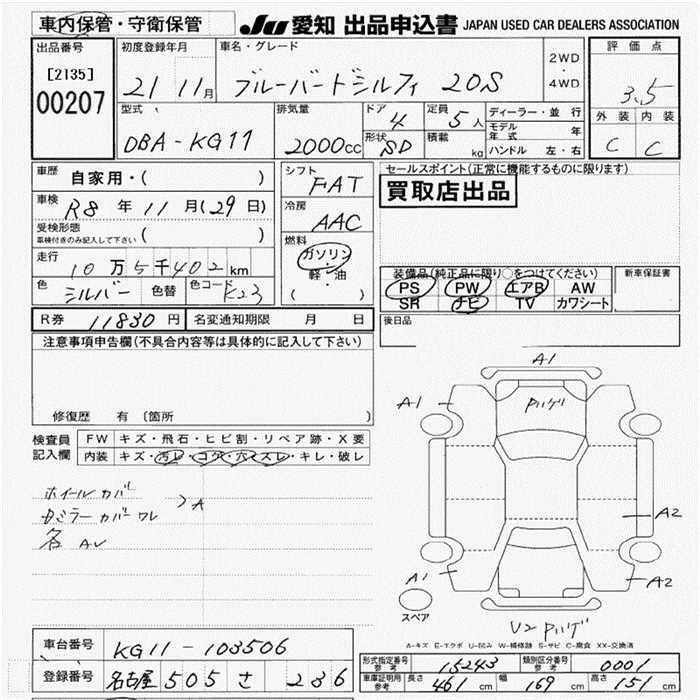 車内保管・守衛保管
JU 愛知 出品申込書 JAPAN USED CAR DEALERS ASSOCIATION
出品番号 初度登録年月 車名・グレード 2WD・4WD 評価点
[2135]
00207 21 11月 ブルーバードシルフィ 20S 3.5
型式 排気量 ドア 定員 ディーラー・並行 外装 内装
DBA-KG11 2000cc 4 5人 モデル年式 年 C C
形状 SD 積載 kg ハンドル 左・右
車歴 自家用・( ) シフト FAT セールスポイント(正常に機能するものに限ります)
車検 R8年11月(29日) 冷房 AAC 買取店出品
受検形態 ( )
車検付きのみ記入して下さい
走行 10万5千402km 燃料 ガソリン・軽・油 ( )
装備品(純正品に限り○をつけてください) 新車保証書
色 シルバー 色替 色コード K23 PS PW エアB AW
SR ナビ TV カワシート
R券 11830円 名変通知期限 月 日 後日品
注意事項申告欄(不具合内容等は具体的に記入して下さい)
修復歴 有 〔箇所
検査員記入欄 FW キズ・飛石・ヒビ割・リペア跡・X要
内装 キズ・汚レ・コゲ・穴・スレ・キレ・破レ
ホイールカバ
ミラーカバー ワレ
A
A1
A1
A2
A1
A2
スペア
U2
A-キズ E-エクボ U-凹み W-補修跡 S-サビ C-腐食 XX-交換済
車台番号 KG11-103506
登録番号 名古屋 505 さ 236
形式指定番号 参考 15243 類別区分番号 参考 0001
車庫証明用 参考 長さ 461cm 幅 169cm 高さ 151cm